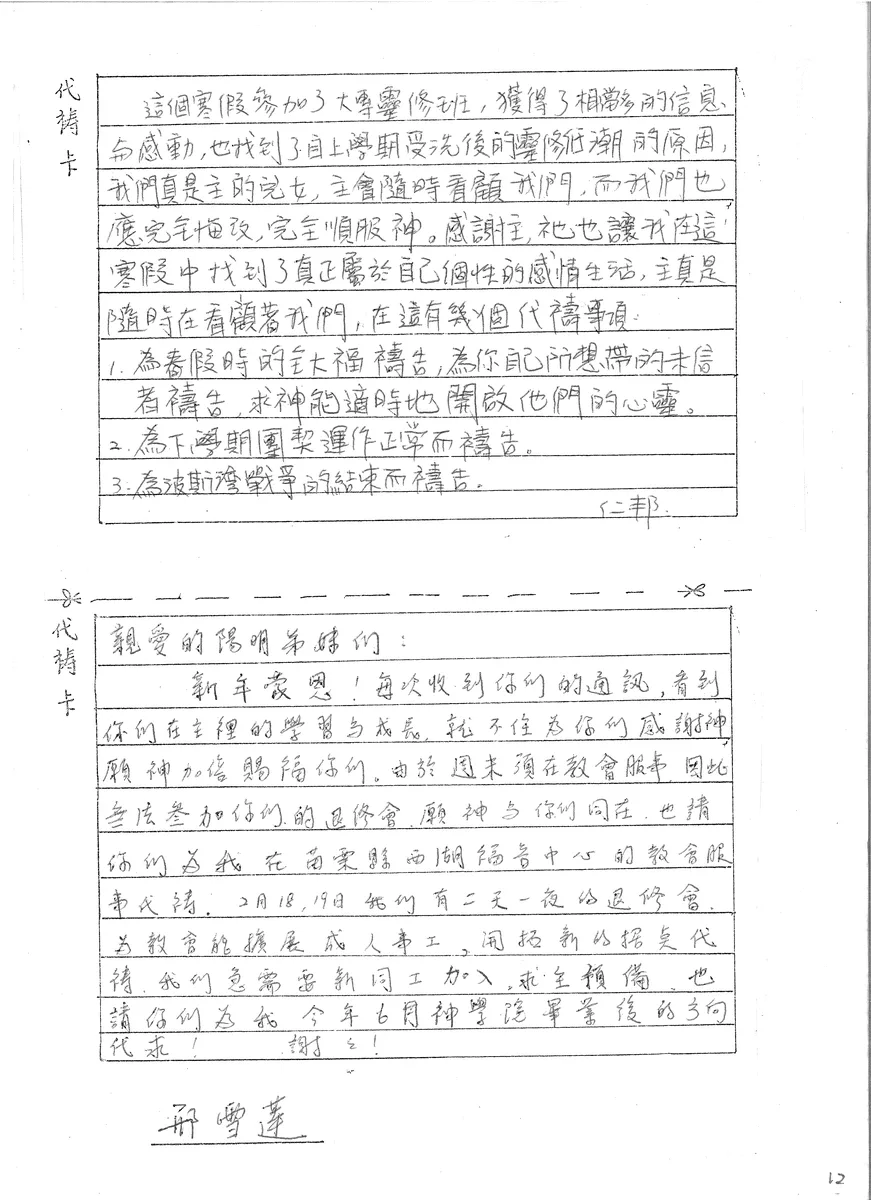 代禱卡
這個寒假參加了大專靈修班，獲得了相當多的信息
与感動，也找到了自上學期受洗後的靈修低潮的原因，
我們真是主的兒女，主會隨時看顧我們，而我們也
應完全悔改，完全順服神。感謝主，祂也讓我在這
寒假中找到了真正屬於自己個性的感情生活，主真是
隨時在看顧著我們，在這有幾個代禱事項：
1. 為春假時的全大福禱告，為你自己所想帶的未信
者禱告，求神能適時地開啟他們的心靈。
2. 為下學期團契運作正常而禱告。
3. 為波斯灣戰爭的結束而禱告。
仁邦.
代禱卡
親愛的陽明弟妹们：
新年蒙恩！每次收到你们的通訊，看到
你们在主裡的學習与成長，就不住為你们感謝神
願神加倍賜福你们。由於週末須在教會服事因此
無法參加你们的退修會，願神与你们同在．也請
你们為我在苗栗縣西湖福音中心的教會服
事代禱．2月18,19日我们有二天一夜的退修會．
為教會能擴展成人事工，開拓新的據點代
禱．我们急需要新同工加入，求主預備．也
請你们為我今年6月神學院畢業後的方向
代求！謝々！
邢雪蓮
12